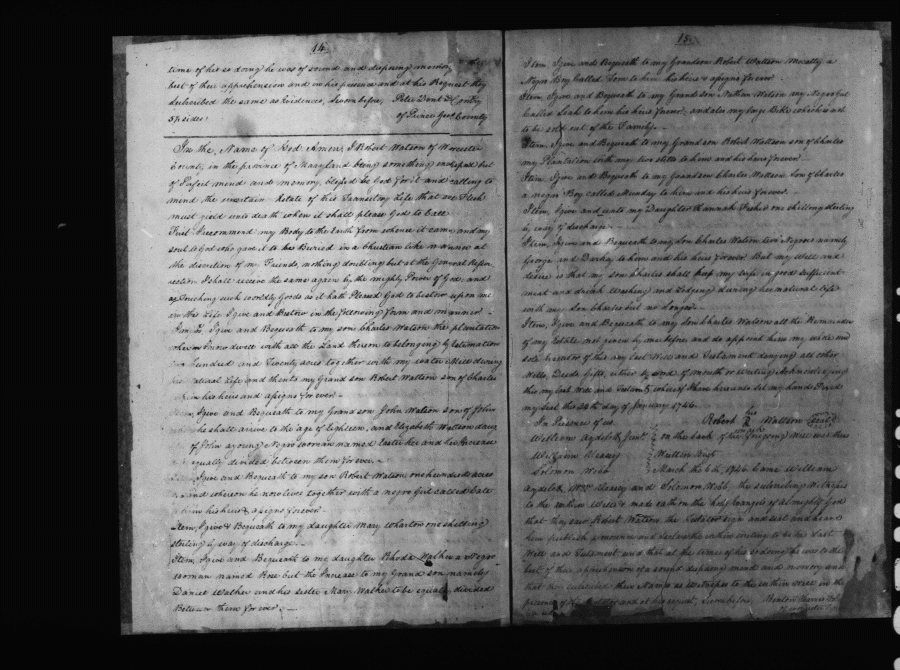 14
time of his so doing he was of sound and disposing memory to the
best of their apprehensions and in his presence and at his Request they
subscribed the same as Evidences, Sworn before, Peter Dent D Com'ry
5½ sides: of Prince Geo's County
In the Name of God Amen, I Robert Watson of Worcester
County in the province of Maryland being something but
of Perfect mind and memory, blessed be God for it and calling to
mind the uncertain Estate of this Transitory Life that all Flesh
must yield unto death when it shall please God to Call
First I recommend my Body to the Earth from whence it came and my
soul to God who gave it to be Buried in a Christian like manner at
the discretion of my Friends, nothing doubting but at the General Resur
rection I shall receive the same again by the mighty Power of God, and
as Touching such worldly Goods as it hath Pleased God to bestow upon me
in this Life I give and Bestow in the following form and manner
Item, I give and Bequeath to my son Charles Watson the plantation
wherein I now dwell with all the Land thereon to belonging by Estimation
hundred and Twenty acres together with my water Mill during
natural Life and then to my Grand son Robert Watson son of Charles
him his heirs and assigns for ever
Item, I give and Bequeath to my Grandson John Watson son of John
he shall arrive to the age of Eighteen, and Elizabeth Watson daug
of John a young Negro woman named and her Increase
equally divided between them for ever
I give and Bequeath to my son Robert Watson one hundred acres
and whereon he now lives together with a negro Girl called Cate
him his heirs & assigns for ever
Item, I give & Bequeath to my daughter Mary Wharton one shilling
sterling by way of discharge
Item, I give and Bequeath to my daughter Rhoda Walker a Negro
woman named Rose but the Increase to my Grand son namely
Daniel Walker and his sister Mary Walker to be equally divided
Between them for ever
15
Item I give and Bequeath to my Grandson Robert Watson a
Negro Boy called Tom to him his heirs & assigns for ever
Item, I give and Bequeath to my Grandson Nathan Watson my Negro Girl
Called Leah to him his heirs for ever, and also my large Bible which is not
to be sold out of the Family
Item, I give and Bequeath to my Grand son Robert Watson son of Charles
my Plantation with my two to him and his heirs for ever
Item, I give and Bequeath to my Grandson Charles Watson son of Charles
a negro Boy called Munday to him and his heirs for ever
Item, I give and unto my Daughter Hannah one shilling sterling
by way of discharge
Item, I give and Bequeath to my son Charles Watson two Negroes namely
George and Darky to him and his heirs for ever But my Will and
desire is that my son Charles shall keep my wife in good sufficient
meat and drink Washing and Lodging during her natural life
with my son Charles but no Longer
Item, I give and Bequeath to my Son Charles Watson all the Remainder
of my Estate not given by me before and do appoint him my whole and
sole Executor of this my Last Will and Testament denying all other
Wills, Deeds Gifts, either by word of mouth or writing Acknowledging
this my last Will and Testam't, whereof I have hereunto set my hand & fixed
my seal this 24th day of January 1746.
In Presence of us Robert his R mark Watson Seal
William Aydelott Jun'r on the back of the foregoing Will was thus
William Written Viz't
Solomon Webb March the 6th, 1746 Came William
Aydelott, W'm and Solomon Webb the subscribing Witnesses
to the within Will & made oath on the holy Evangels of almighty God
that they saw Robert Watson the Testator sign and seal and heard
him publish pronounce and declare the within writing to be his Last
Will and Testament and that at the time of his so doing he was to the
best of their apprehension of a sound disposing mind and memory and
that they subscribed their Names as Witnesses to the within Will in the
presence of the Testator and at his request, sworn before